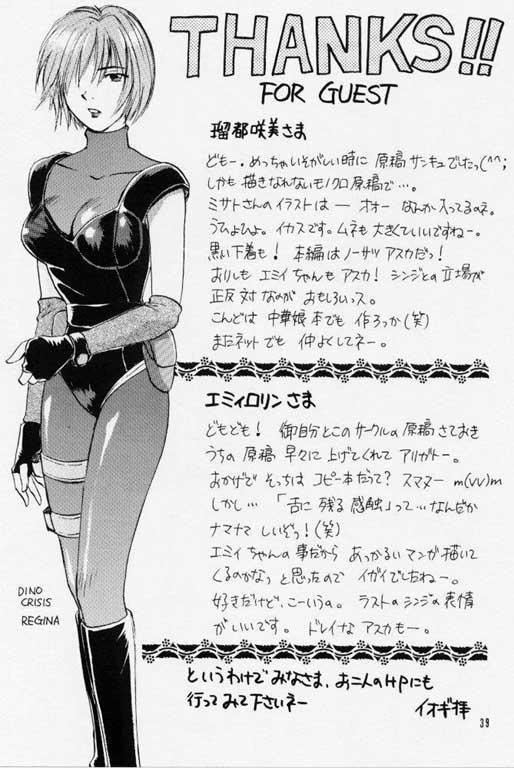 THANKS!!
FOR GUEST
瑠都咲美さま
どもー。めっちゃいそがしい時に 原稿サンキュでしたっ(^^;
しかも描きなれないモノクロ原稿で…。
ミサトさんのイラストは ー オオー なんか入ってるのネ。
うひょひょ。イカスです。ムネも大きくていいですねー。
黒い下着も! 本編はノーサツアスカだっ!
おりしもエミイちゃんもアスカ! シンジとの立場が
正反対なのが おもしろいっス。
こんどは 中華娘本でも 作ろっか(笑)
またネットでも 仲よくしてネー。
エミィロリン さま
どもども! 御自分とこのサークルの原稿さておき
うちの 原稿 早々に 上げてくれて アリガトー。
おかげで そっちは コピー本だって? スマヌー m(vv)m
しかし… 「舌に残る感触」って…なんだか
ナマナマしいぞっ!(笑)
エミイちゃんの事だから あっかるいマンガ描いて
くるのかなっ と思ったので イガイでしたねー。
好きだけど、こーいうの。 ラストのシンジの表情
がいいです。 ドレイなアスカもー。
というわけで みなさま、お二人のHPにも
行ってみて下さいネー
イオギ拝
DINO
CRISIS
REGINA
39